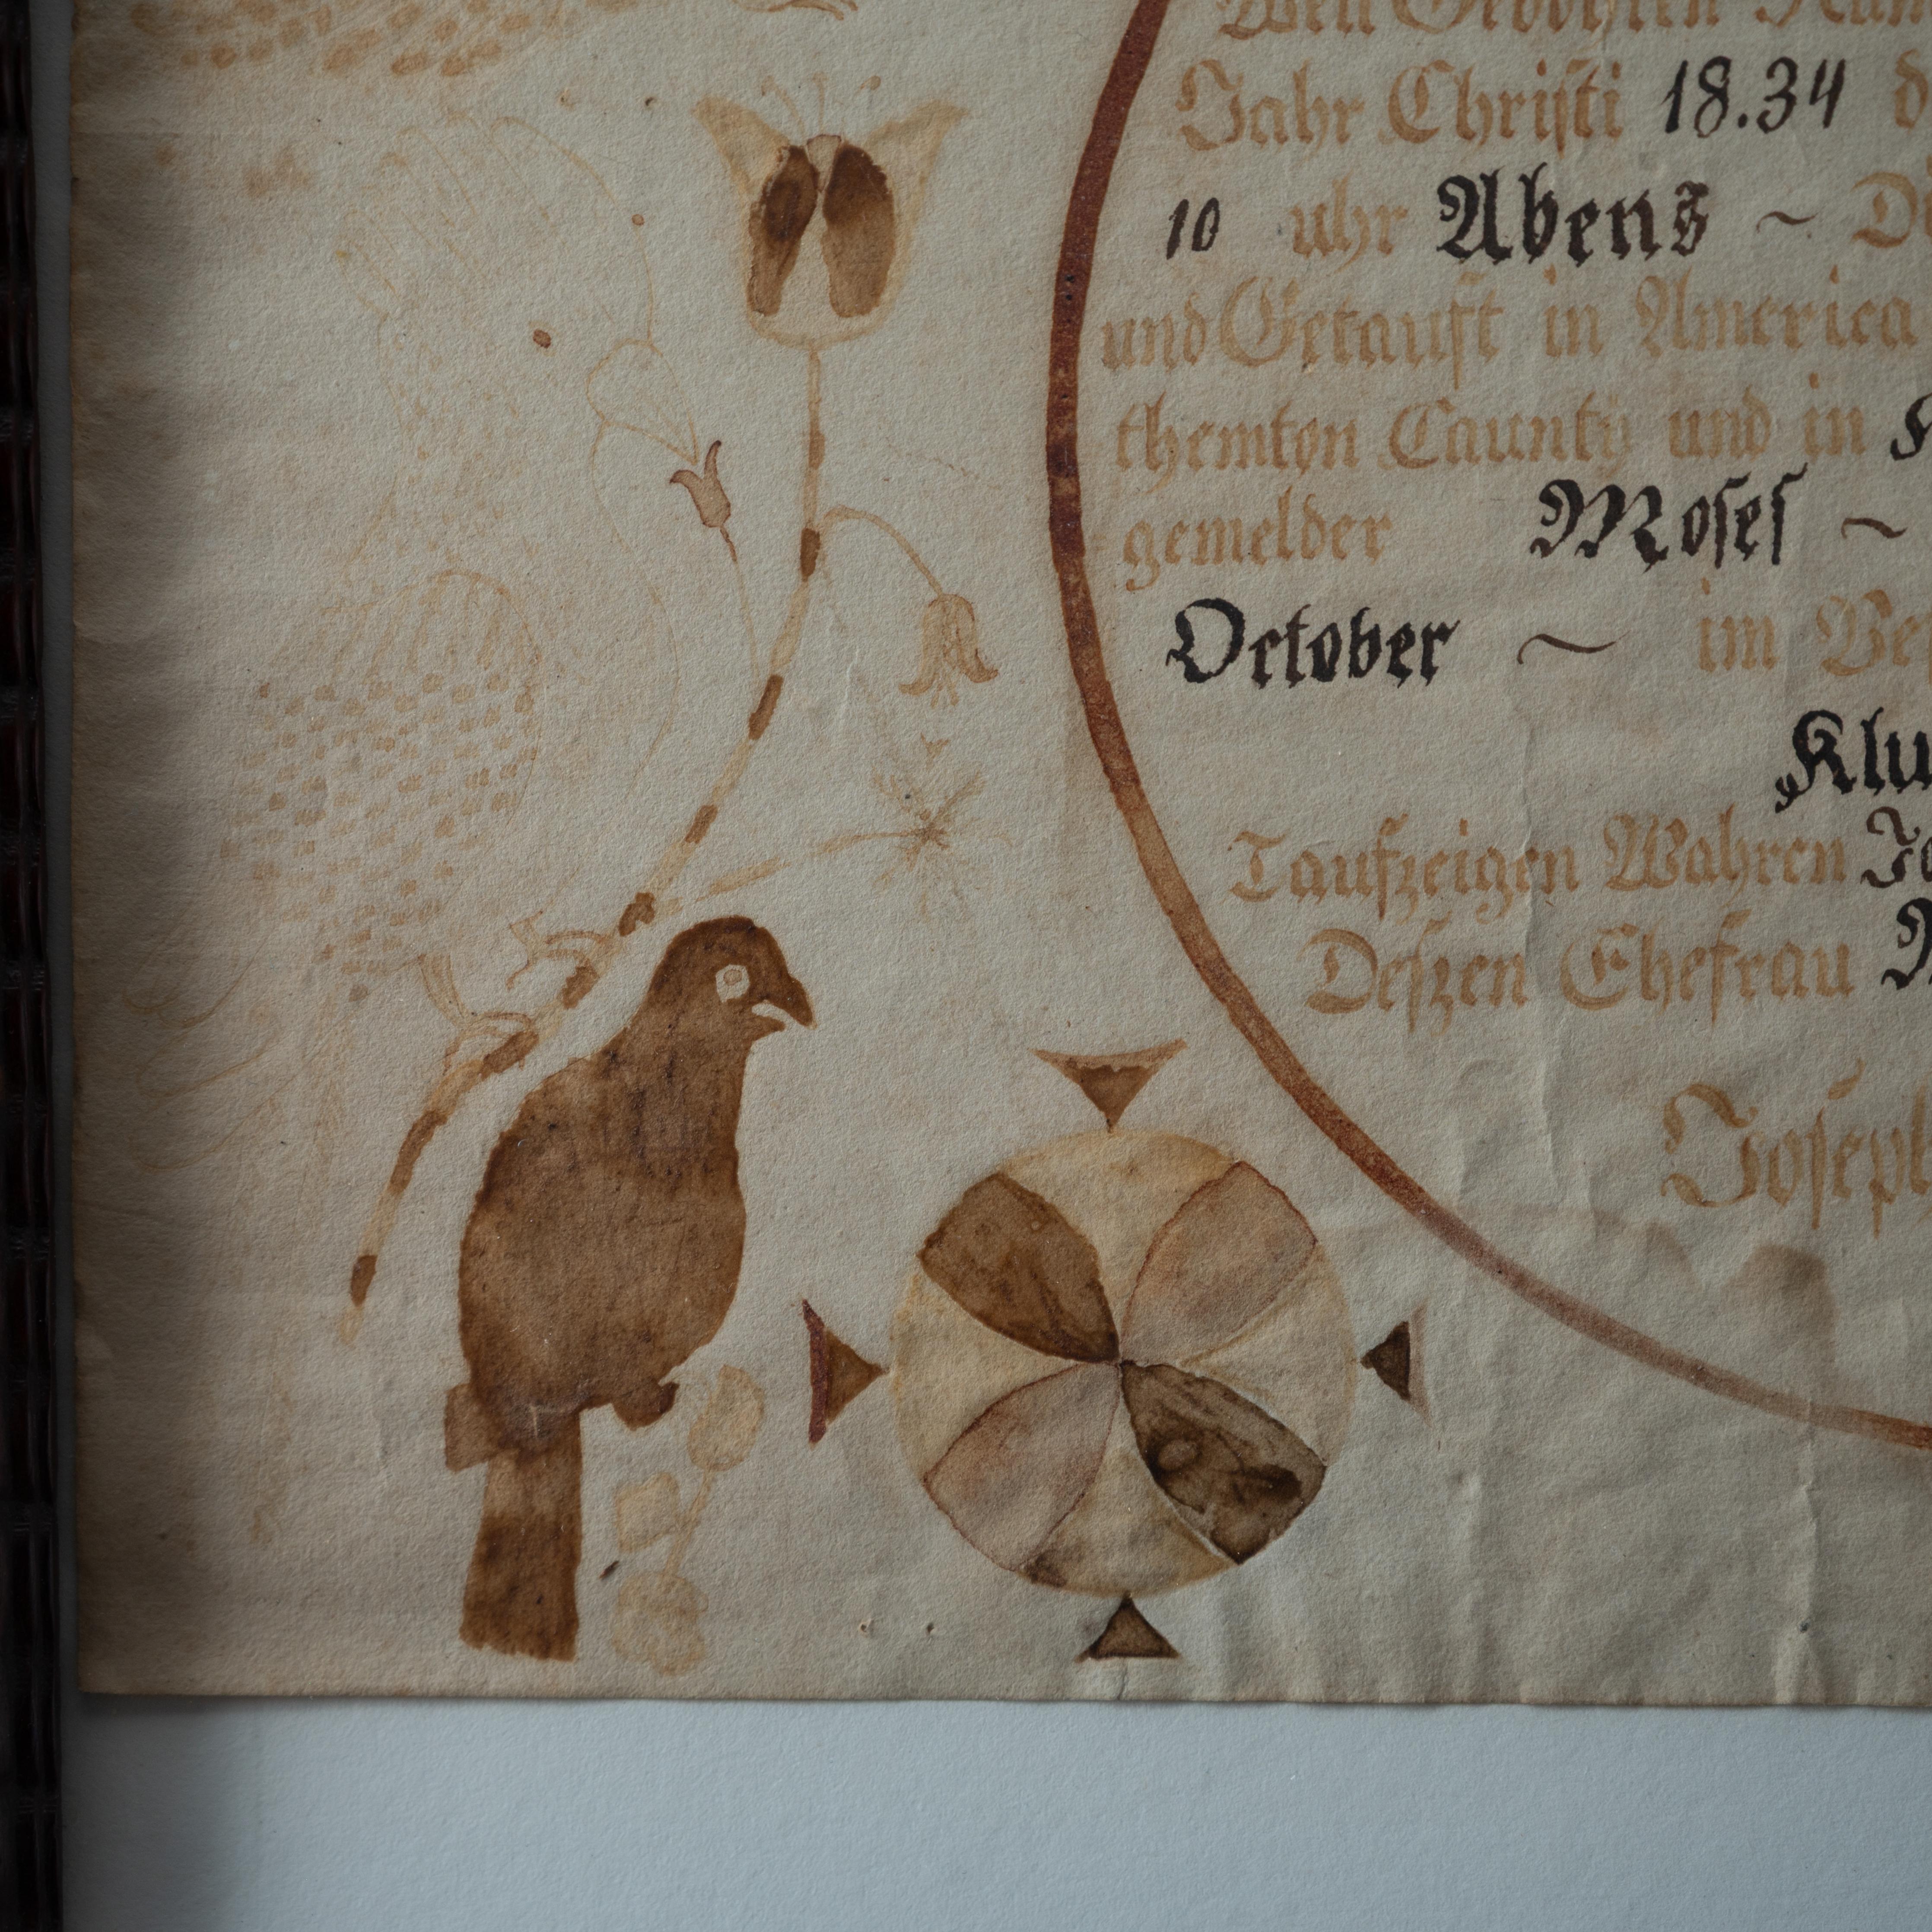 Jahr Christi 18.34
10 uhr Abens ~
und Getauft in America
themton Caunty und in
gemelder Moses ~
October ~ im
Taufzeigen Wahren
Deszen Ehefrau